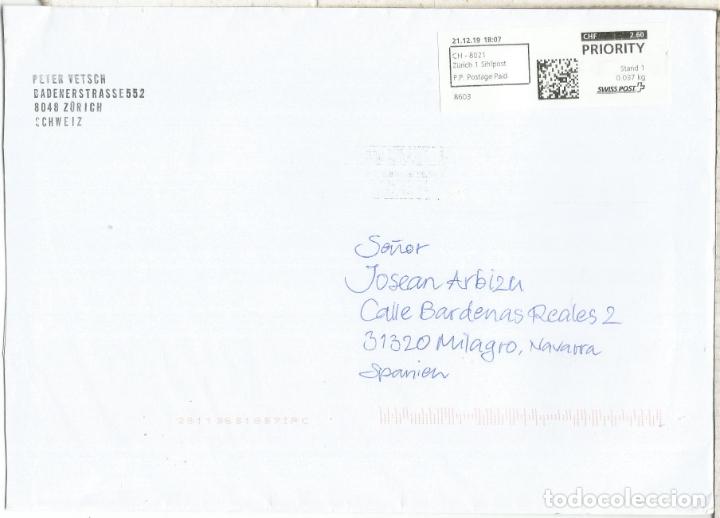 PETER VETSCH
BADENERSTRASSE552
8048 ZÜRICH
SCHWEIZ
21.12.19 18:07
CH - 8021
Zürich 1 Sihlpost
P.P. Postage Paid
8603
CHF 2.60
PRIORITY
Stand 1
0.037 kg
SWISS POST
Señor
Josean Arbizu
Calle Bardenas Reales 2
31320 Milagro, Navarra
Spanien
todocoleccion